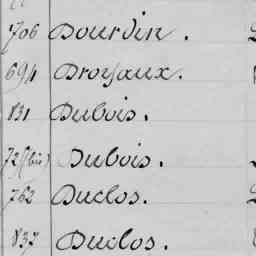 706 Dourdin.
694 Droyaux.
831 Dubois.
72 (bis) Dubois.
762 Duclos.
837 Duclos.